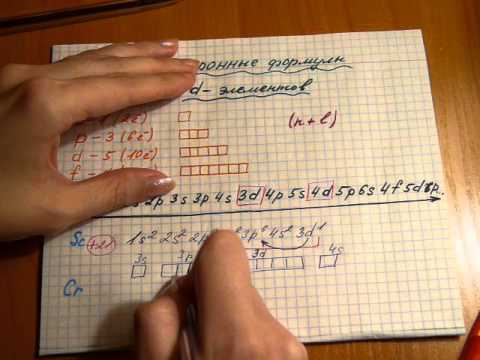 формулы
d- элементов
(2ē)
p - 3 (6ē)
(n + l)
d - 5 (10ē)
f -
2p 3s 3p 4s 3d 4p 5s 4d 5p 6s 4f 5d 6p...
Sc +21 1s² 2s² 2p 3p⁶ 4s² 3d¹
3s 3p 3d 4s
Cr